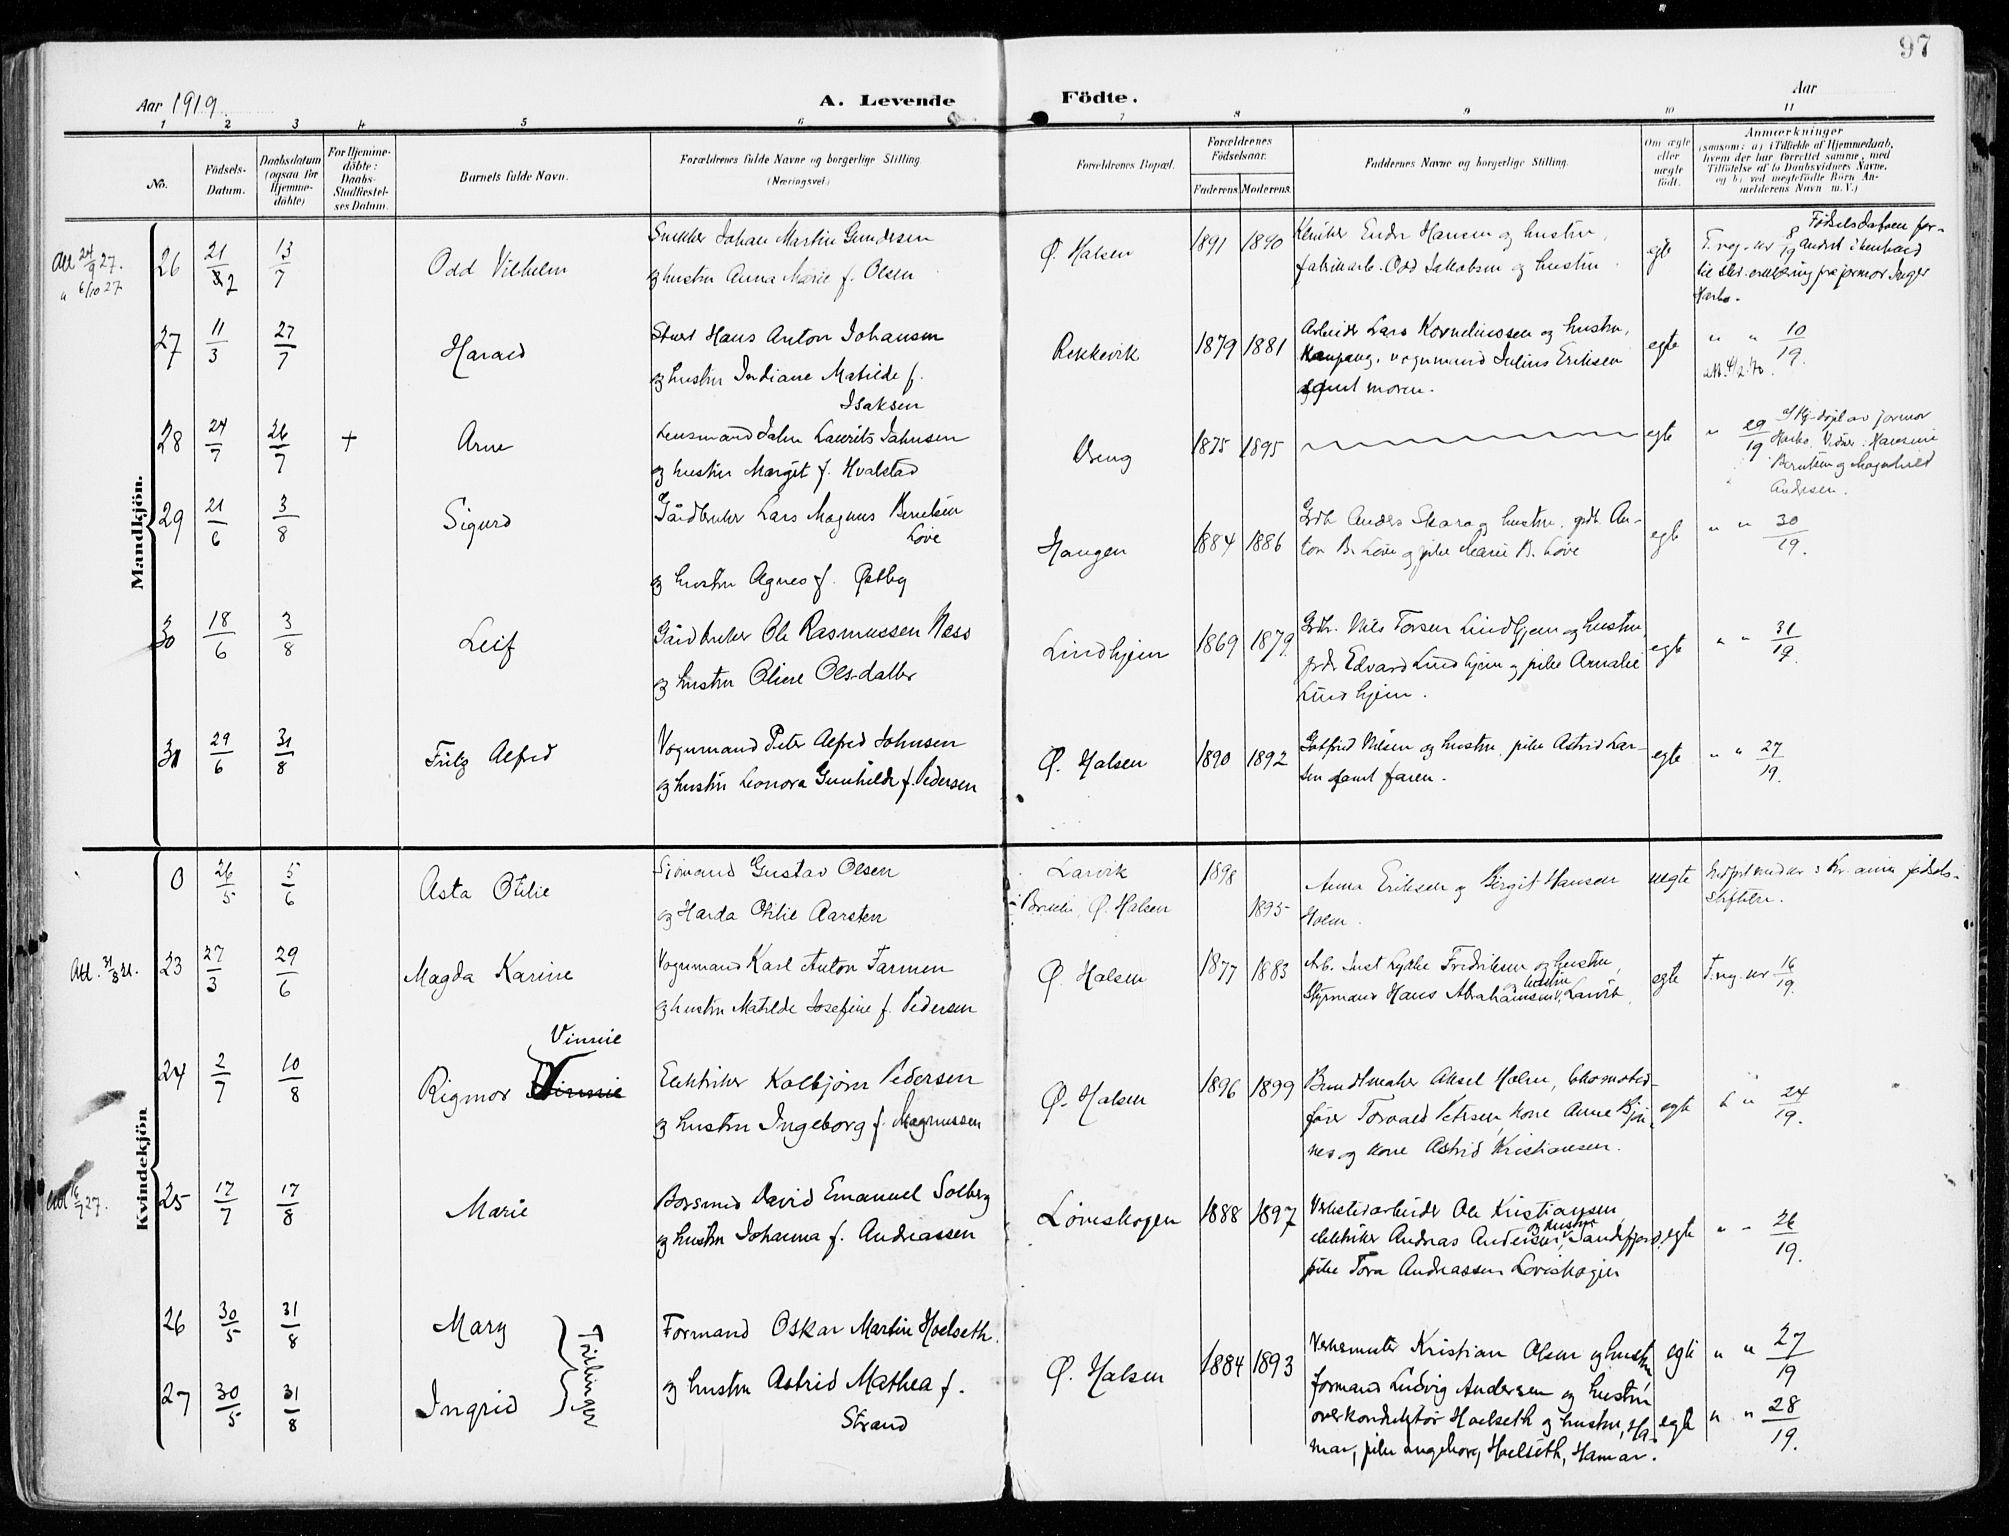 97
Aar 1919.
A. Levende Födte.
Aar
1 2 3 4 5 6 7 8 9 10 11
No.
Födsels-Datum.
Daabsdatum (ogsaa for Hjemmedöbte)
For Hjemmedöbte: Daabs-Stadfæstelses Datum.
Barnets fulde Navn.
Forældrenes fulde Navne og borgerlige Stilling.
(Næringsvei)
Forældrenes Bopæl.
Forældrenes Födselsaar.
Faderens. Moderens.
Faddernes Navne og borgerlige Stilling.
Om ægte eller uægte födt.
Anmærkninger
(saasom: a) i Tilfælde af Hjemmedaab, hvem der har forrettet samme, med Tilföielse af to Daabsvidners Navne. og b) ved uægtefödte Börn Anmelderens Navn m. V.)
Mandkjön.
Att 24/9 27.
" 6/10 27
26 21/2 13/7 Odd Vilhelm
Snekker Johan Martin Gundersen
og hustru Anna Marie f. Olsen
Ø. Halsen 1891 1890
Hansen og hustru,
fabrikarb. Odd Jakobsen og hustru
egte
T. reg. nr 8/19 Fødselsdatoen for-
andret i henhold
til skr. erklæring fra jormor Inger
Harbo.
27 11/3 27/7 Harald
Stuert Hans Anton Johansen
og hustru Indiane Matilde f.
Isaksen
Rekkevik 1879 1881
Arbeider Lars Korneliussen og hustru,
Kaupang, vognmand Julius Eriksen
samt moren.
egte " " 10/19.
28 24/7 26/7 + Arne
Lensmand John Laurits Johnsen
og hustru Margit f. Hvalstad
Vreng 1875 1895
egte " 29/19
Hj-døpt av jormor
Harbo. Vidner: Hansine
Berntsen og Magnhild
Andersen.
29 21/6 3/8 Sigurd
Gårdbruker Lars Magnus Berntsen
Løve
og hustru Agnes f. Østby
Haugen 1884 1886
Grdb. Anders Skara og hustru, grdb. An-
ton B. Løve og pike Marie B. Løve
egte " " 30/19.
30 18/6 3/8 Leif
Gårdbruker Ole Rasmussen Næss
og hustru Oline Olsdatter
Lindhjem 1869 1879
Grdbr. Nils Torsen Lindhjem og hustru,
grdbr Edvard Lindhjem og pike Amalie
Lindhjem.
egte " " 31/19.
31 29/6 31/8 Fritz Alfred
Vognmand Peter Alfred Johnsen
og hustru Leonora Gunhilde f. Pedersen
Ø. Halsen 1890 1892
Gotfred Nilsen og hustru, pike Astrid Lar-
sen samt faren.
egte " " 27/19.
Kvindekjön
0 26/5 5/6 Asta Otilie
Sjömand Gustav Olsen
og Harda Otilie Aarsten
Larvik
Ø. Halsen
1898
1895
Anna Eriksen og Birgit Hansen
Holm.
uegte
fødsels-
stiftelse.
Att. 31/3 31.
23 27/3 29/6 Magda Karine
Vognmand Karl Anton Farmen
og hustru Matilde Josefine f. Pedersen
Ø. Halsen 1877 1883
Arb. Just Lytke Fredriksen og hustru,
og hustru
Styrmand Hans Abrahamsen, Larvik.
egte T. reg. nr 16/19.
Vinnie
24 2/7 10/8 Rigmor Vinnie
Elektriker Kolbjörn Pedersen
og hustru Ingeborg f. Magnussen
Ø. Halsen 1896 1899
Buntmaker Aksel Holm, lokomotiv-
fører Torvald Petersen, kone Anne Bjön-
nes og kone Astrid Kristiansen.
egte " " 24/19.
Att 16/7 27.
25 17/7 17/8 Marie
Börsmd David Emanuel Solberg
og hustru Johanna f. Andreassen
Løveskogen 1888 1897
Verkstedarbeider Ole Kristiansen
og hustru
elektriker Andreas Andersen, Sandefjord,
pike Tora Andreassen Løveskogen
egte " " 26/19.
26 30/5 31/8 Mary
27 30/5 31/8 Ingrid
Trillinger
Formand Oskar Martin Hoelseth.
og hustru Astrid Mathea f.
Strand
Ø. Halsen 1884 1893
Verksmester Kristian Olsen og hustru
formand Ludvig Andersen og hustru
overkonduktör Hoelseth og hustru, Ha-
mar, pike Ingeborg Hoelseth, Hamar.
egte " " 27/19
egte " " 28/19.